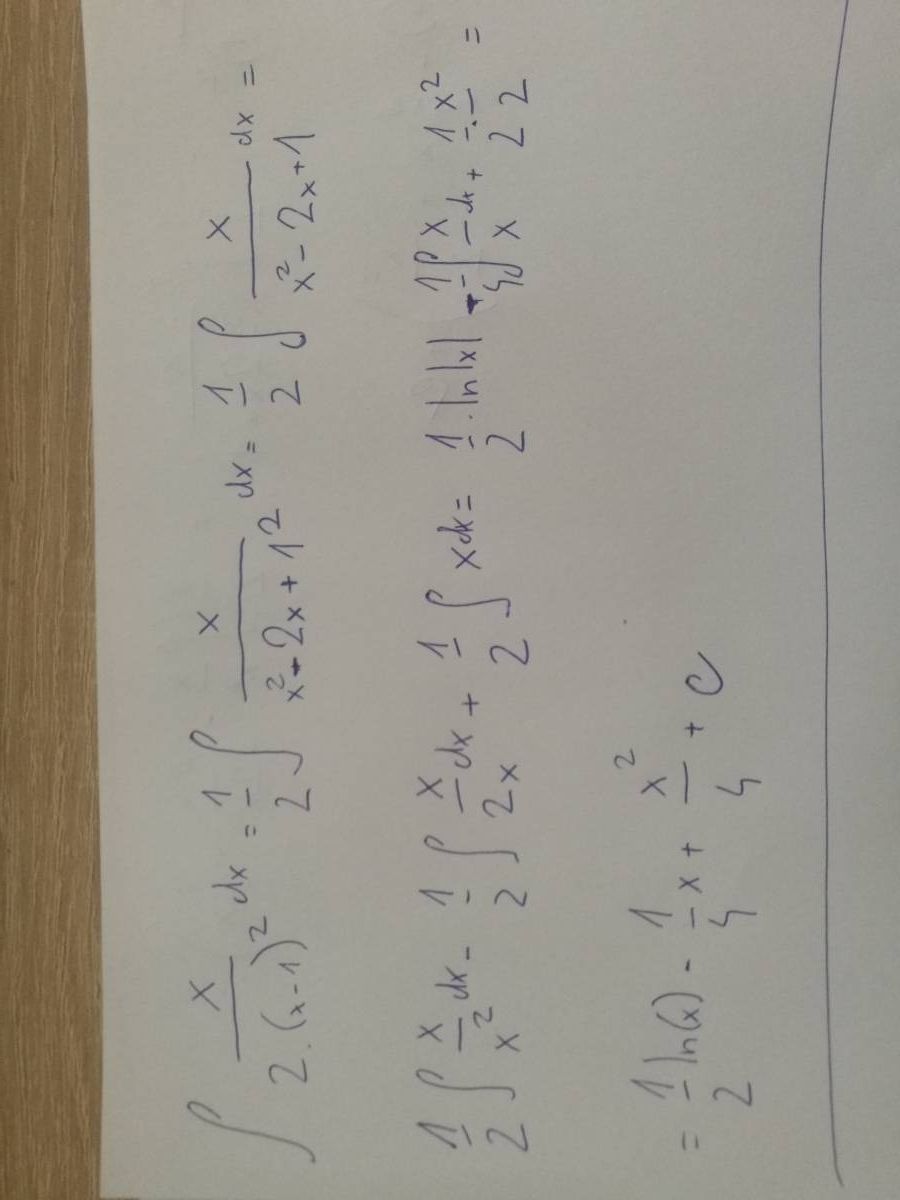 ∫ x/(2·(x-1)²) dx = 1/2 ∫ x/(x²-2x+1²) dx = 1/2 ∫ x/(x²-2x+1) dx =
1/2 ∫ x/x² dx - 1/2 ∫ x/2x dx + 1/2 ∫ x dx = 1/2 · ln|x| - 1/4 ∫ x/x dx + 1/2 · x²/2 =
= 1/2 ln(x) - 1/4 x + x²/4 + C